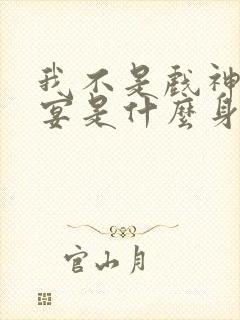 我不是戏神
宴是什麼身
官山月